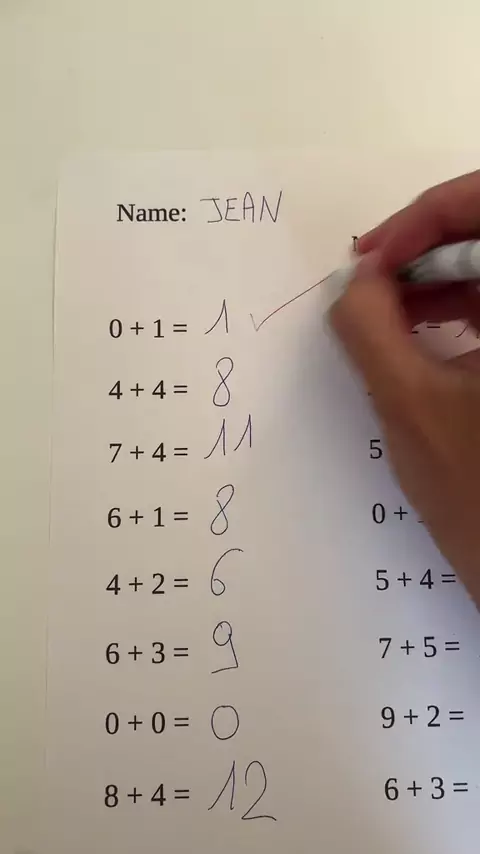 Name: JEAN
0 + 1 = 1
4 + 4 = 8
7 + 4 = 11
6 + 1 = 8
4 + 2 = 6
6 + 3 = 9
0 + 0 = 0
8 + 4 = 12
5
0 +
5 + 4 =
7 + 5 =
9 + 2 =
6 + 3 =